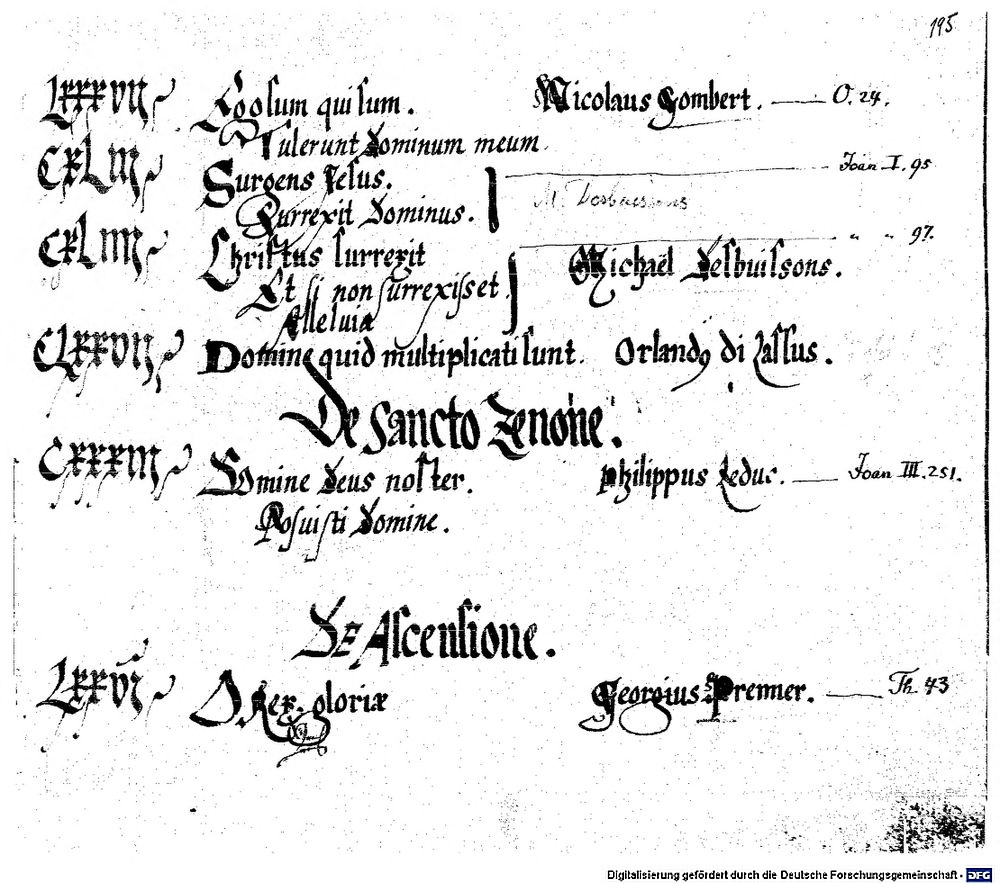 195
LXXXVII Ego sum qui sum. Nicolaus Gombert. — O. 24.
Tulerunt Dominum meum.
CXLIII Surgens Jesus. Joan I. 95
M. Desbuissons
Surrexit Dominus.
CXLIIII Christus surrexit " " 97.
Michaël Desbuissons.
Et si non surrexisset
Alleluia
CLXXVII Domine quid multiplicati sunt. Orlando di Lassus.
De Sancto Zenone.
CXXXIII Domine Deus noster. Philippus Leduc. — Joan III. 251.
Posuisti Domine.
De Ascensione.
LXXVI O Rex gloriæ Georgius Prenner. — Th. 43
Digitalisierung gefördert durch die Deutsche Forschungsgemeinschaft - DFG